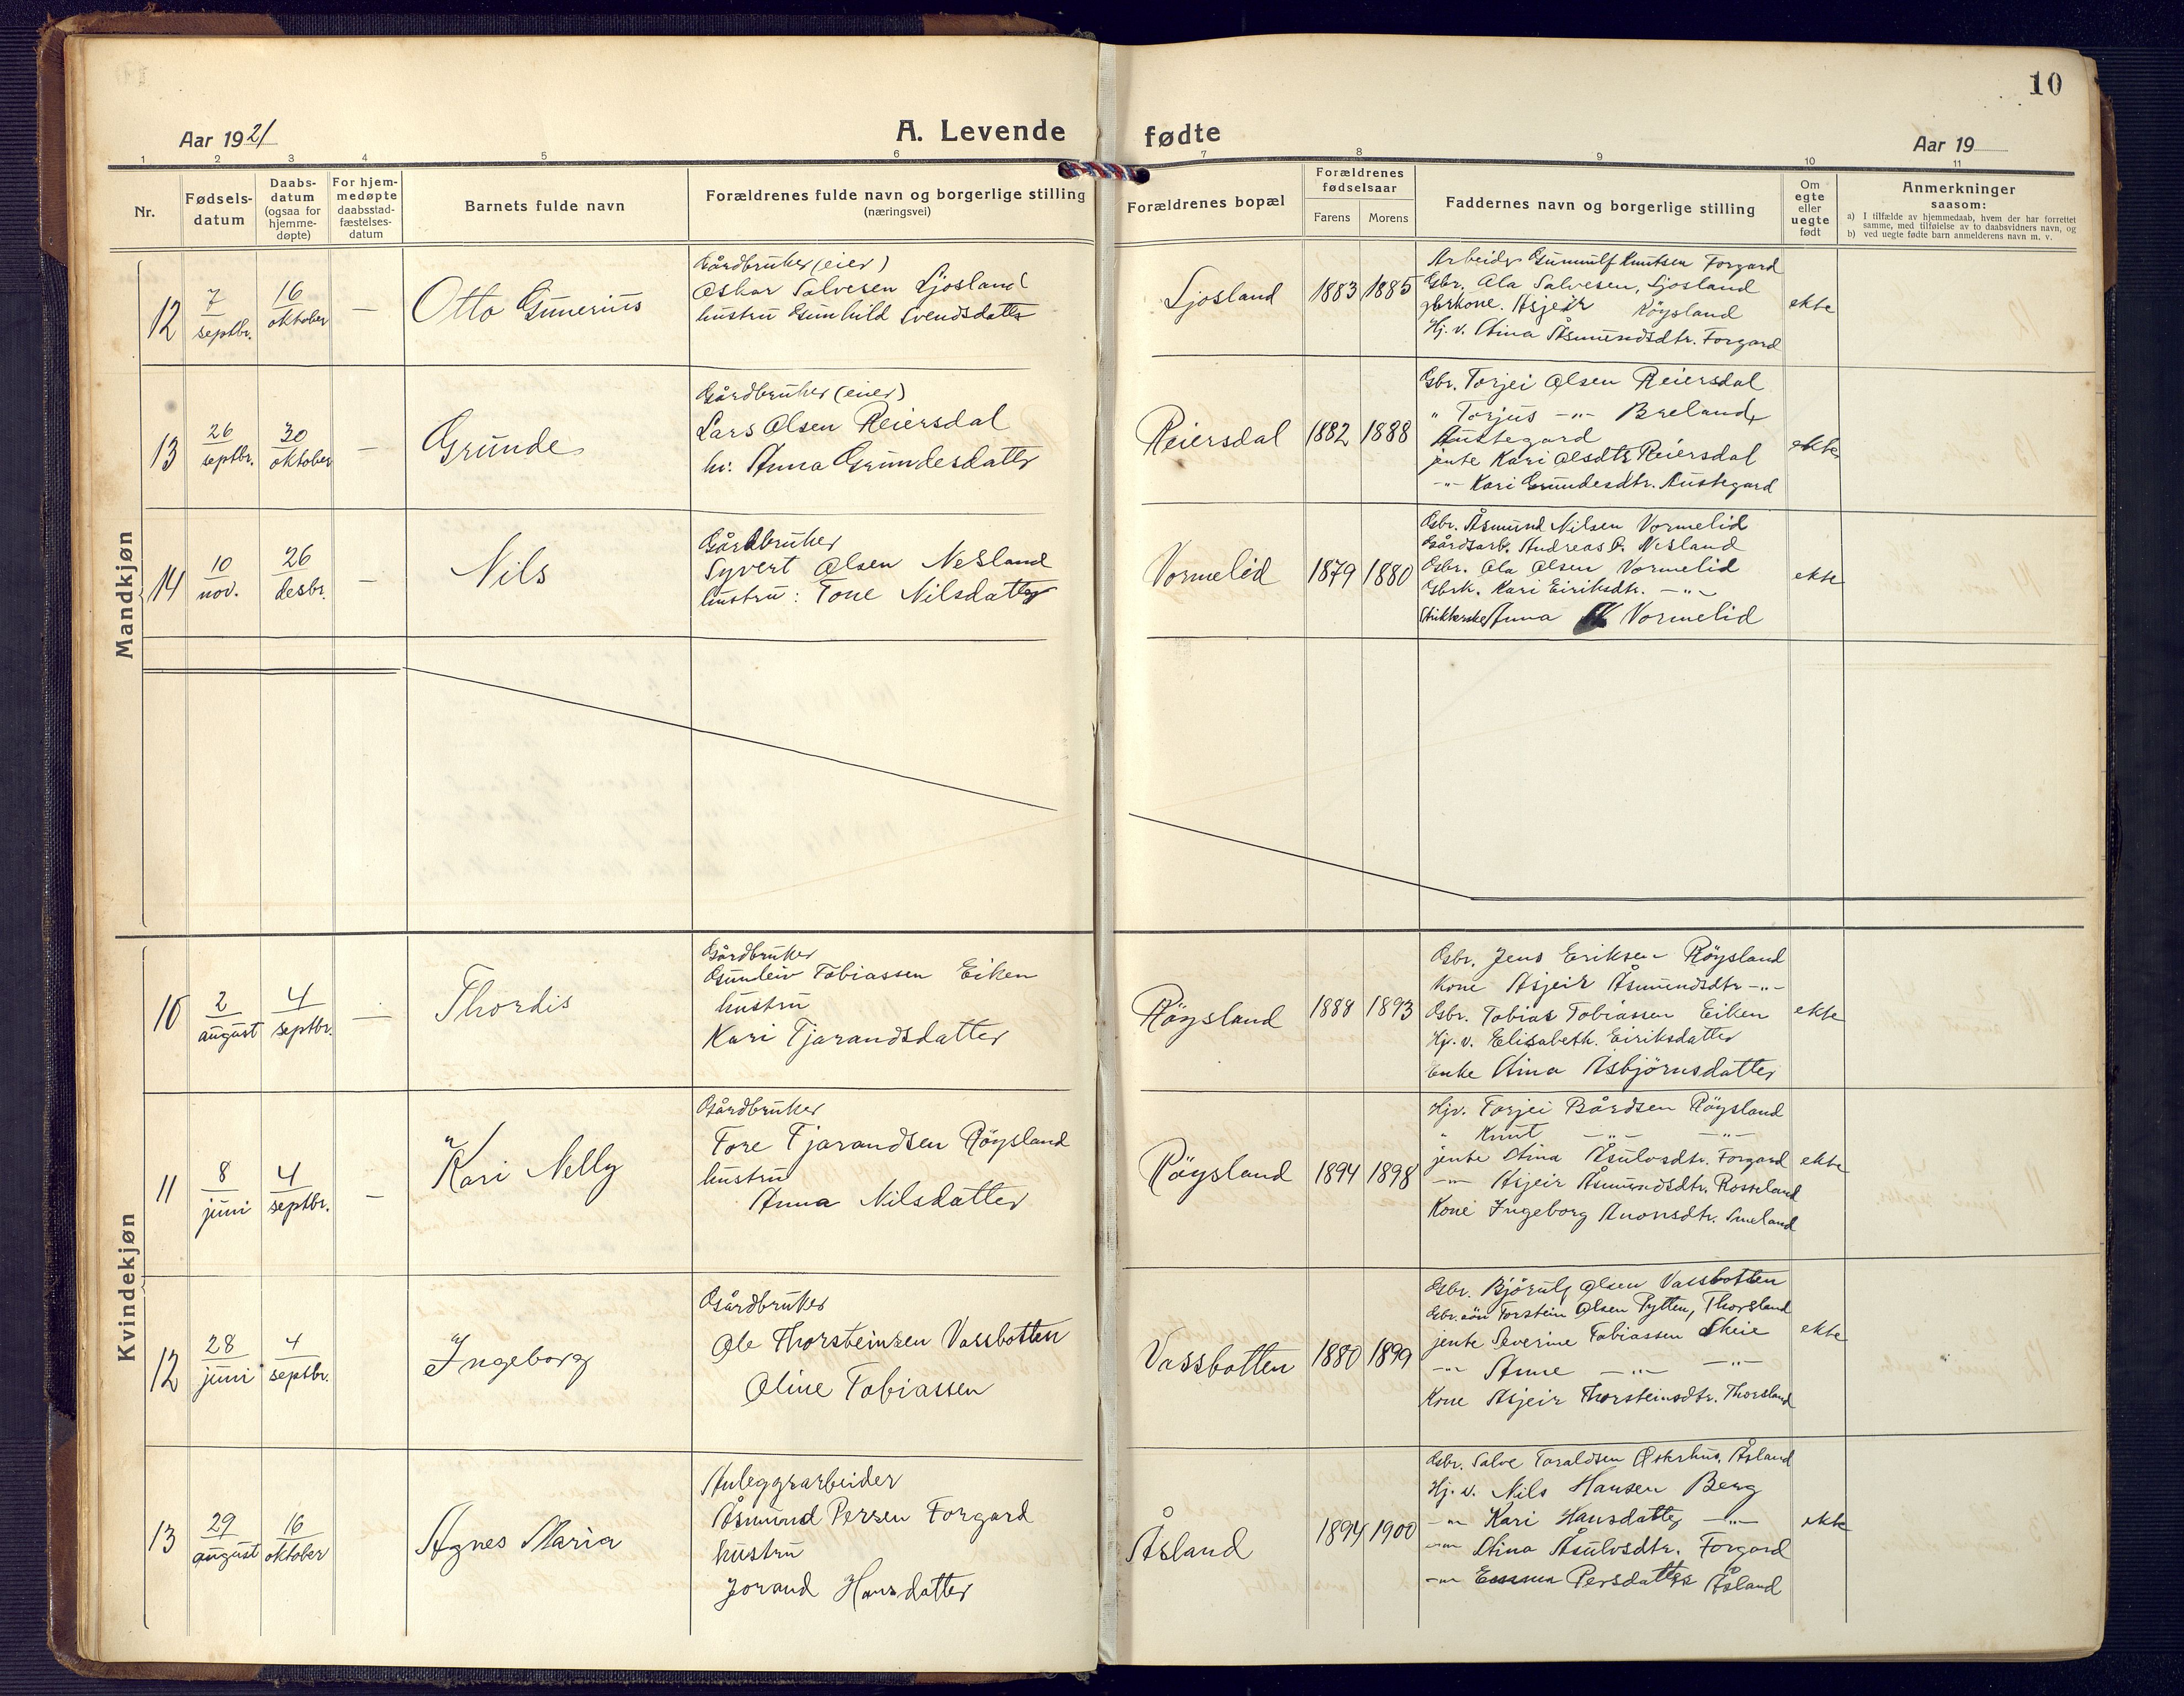 10
Aar 1921
A. Levende fødte
Aar 19
1 2 3 4 5 6 7 8 9 10 11
Nr.
Fødsels-
datum
Daabs-
datum
(ogsaa for
hjemme-
døpte)
For hjem-
medøpte
daabsstad-
fæstelses-
datum
Barnets fulde navn
Forældrenes fulde navn og borgerlige stilling
(næringsvei)
Forældrenes bopæl
Forældrenes
fødselsaar
Farens Morens
Faddernes navn og borgerlige stilling
Om
egte
eller
uegte
født
Anmerkninger
saasom:
a) I tilfælde av hjemmedaab, hvem der har forrettet
samme, med tilføielse av to daabsvidners navn, og
b) ved uegte fødte barn anmelderens navn m. v.
Mandkjøn
12
7
septbr.
16
oktober
—
Otto Gunerius
Gårdbruker (eier)
Oskar Salvesen Ljosland
hustru Gunhild Svendsdatter
Ljosland
1883 1885
Arbeider Gunnulf Knutsen Forgard
Gbr. Ola Salvesen, Ljosland
Asjeir Röysland
Hj. v. Stina Åsmundsdtr. Forgard
ekte
13
26
septbr.
30
oktober
—
Grunde
Gårdbruker (eier)
Lars Olsen Reiersdal
hu: Anna Grundesdatter
Reiersdal
1882 1888
Gbr. Torjei Olsen Reiersdal
" Torjus -"- Breland,
Austegard
jente Kari Olsdtr Reiersdal
-"- Kari Grundesdtr. Austegard
ekte
14
10
nov.
26
desbr.
—
Nils
Gårdbruker
Syvert Olsen Nesland
hustru: Tone Nilsdatter
Vormelid
1879 1880
Gbr. Åsmund Nilsen Vormelid
Gårdsarb. Andreas P. Nesland
Gbr. Ola Olsen Vormelid
Gbrk. Kari Eiriksdtr. -"-
Anna Vormelid
ekte
Kvindekjøn
10
2
august
4
septbr.
—
Thordis
Gårdbruker
Gunleiv Tobiassen Eiken
hustru
Kari Tjarandsdatter
Röysland
1888 1893
Gbr. Jens Eriksen Röysland
Kone Asjeir Åsmundsdtr -"-
Gbr. Tobias Tobiassen Eiken
Hj. v. Elisabeth Eiriksdatter
Enke Stina Asbjörnsdatter
ekte
11
8
juni
4
septbr.
—
Kari Nelly
Gårdbruker
Tore Tjarandsen Röysland
hustru
Anna Nilsdatter
Röysland
1894 1898
Hjv. Torjei Bårdsen Röysland
" Knut -"- -"-
jente Stina Åsulvsdtr. Forgard
-"- Asjeir Åsmundsdtr. Rosseland
Kone Ingeborg Anonsdtr. Smeland
ekte
12
28
juni
4
septbr.
Ingeborg
Gårdbruker
Ole Thorsteinsen Vassbotten
Oline Tobiassen
Vassbotten
1880 1899
Gbr. Bjórulf Olsen Vassbotten
Gbr.sön Torstein Olsen Pytten, Thorsland
jente Severine Tobiassen Skeie
-"- Anne -"- -"-
Kone Asjeir Thorsteinsdtr. Thorsland
ekte
13
29
august
16
oktober
Agnes Maria
Anleggsarbeider
Åsmund Persen Forgard
hustru
Jorand Hansdatter
Åsland
1894 1900
Gbr. Salve Taraldsen Åsland
Hj. v. Nils Hansen Berg
-"- Kari Hansdatter -"-
-"- Stina Åsulvsdtr. Forgard
-"- Emma Persdatter Åsland
ekte